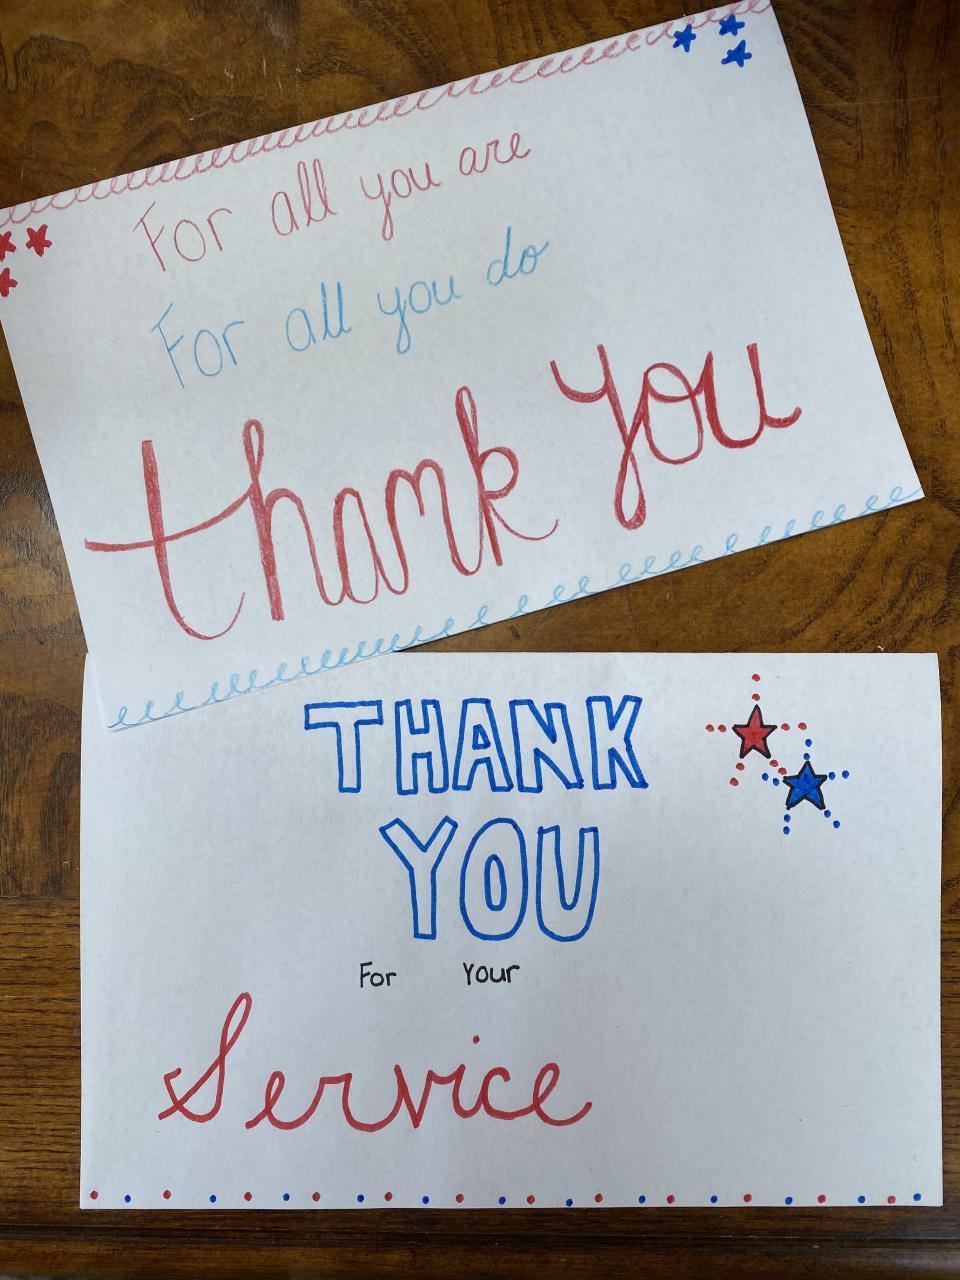 For all you are
For all you do
thank you
THANK
YOU
For Your
Service